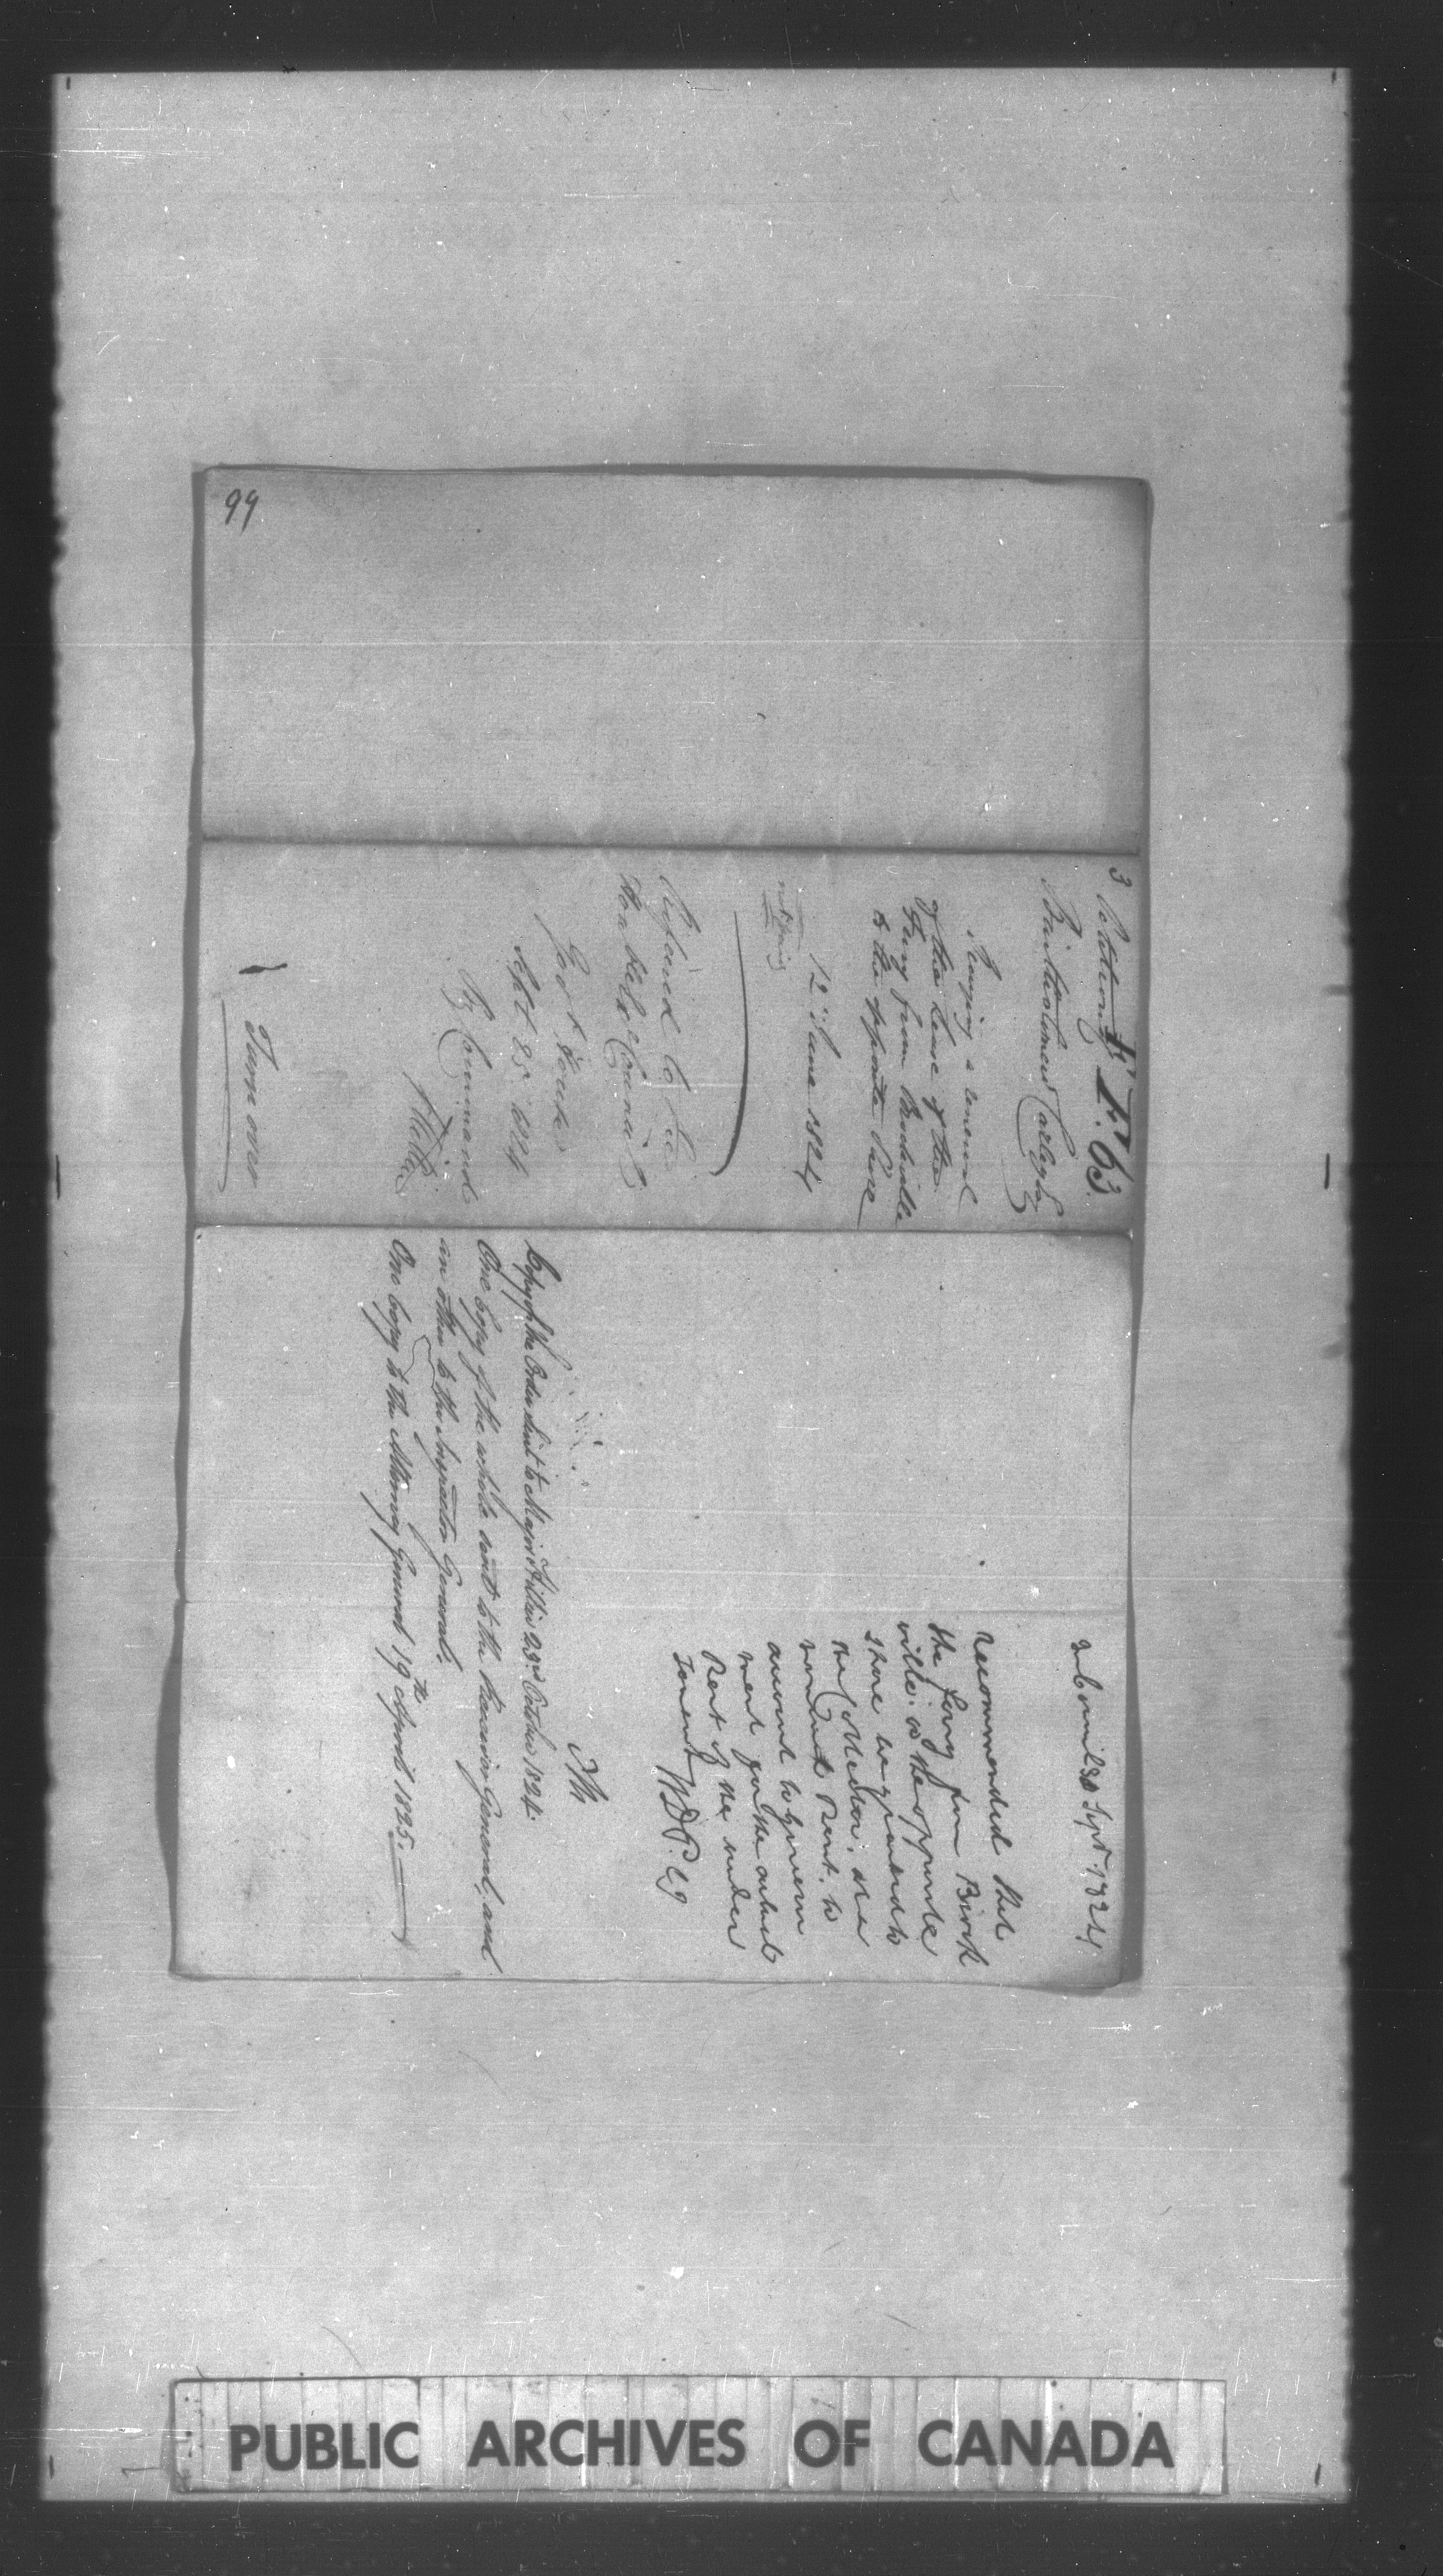 99
3 Petition
F No 63.
Bartholomew Carley for
Praying a renewal
of the lease of the
Ferry from Brockville
to the opposite Shore
12 June 1824
Referred to the
Hon ble Ex Council
Gov t House
Sept 25 1824
By Command
G Hillier
Turn over
In Council 30 Sept. 1824
Recommended that
the ferry from Brock
ville to the opposite
shore be granted to
the at a
Rent, to
amount to Govern
ment for the actual
Rent of the under
Tenent W.D.P. CJ
Copy of the Order sent to Major Hillier 23rd October 1824.
One Copy of the whole sent to the Receiver General, and
an other to the Inspector General.
One Copy to the Attorney General 19th April 1825.
PUBLIC ARCHIVES OF CANADA